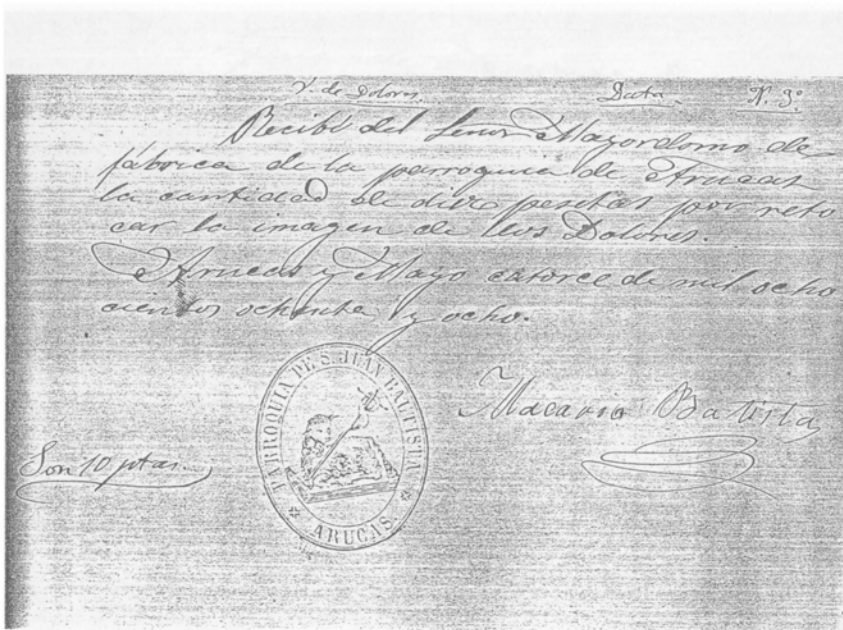 V. de Dolores. Data. N. 3º
Recibí del Señor Mayordomo de
fábrica de la parroquia de Arucas
la cantidad de diez pesetas por reto
car la imagen de los Dolores.
Arucas y Mayo catorce de mil ocho
cientos ochenta y ocho.
Macario Batista
Son 10 ptas.
PARROQUIA DE S. JUAN BAUTISTA
ARUCAS.